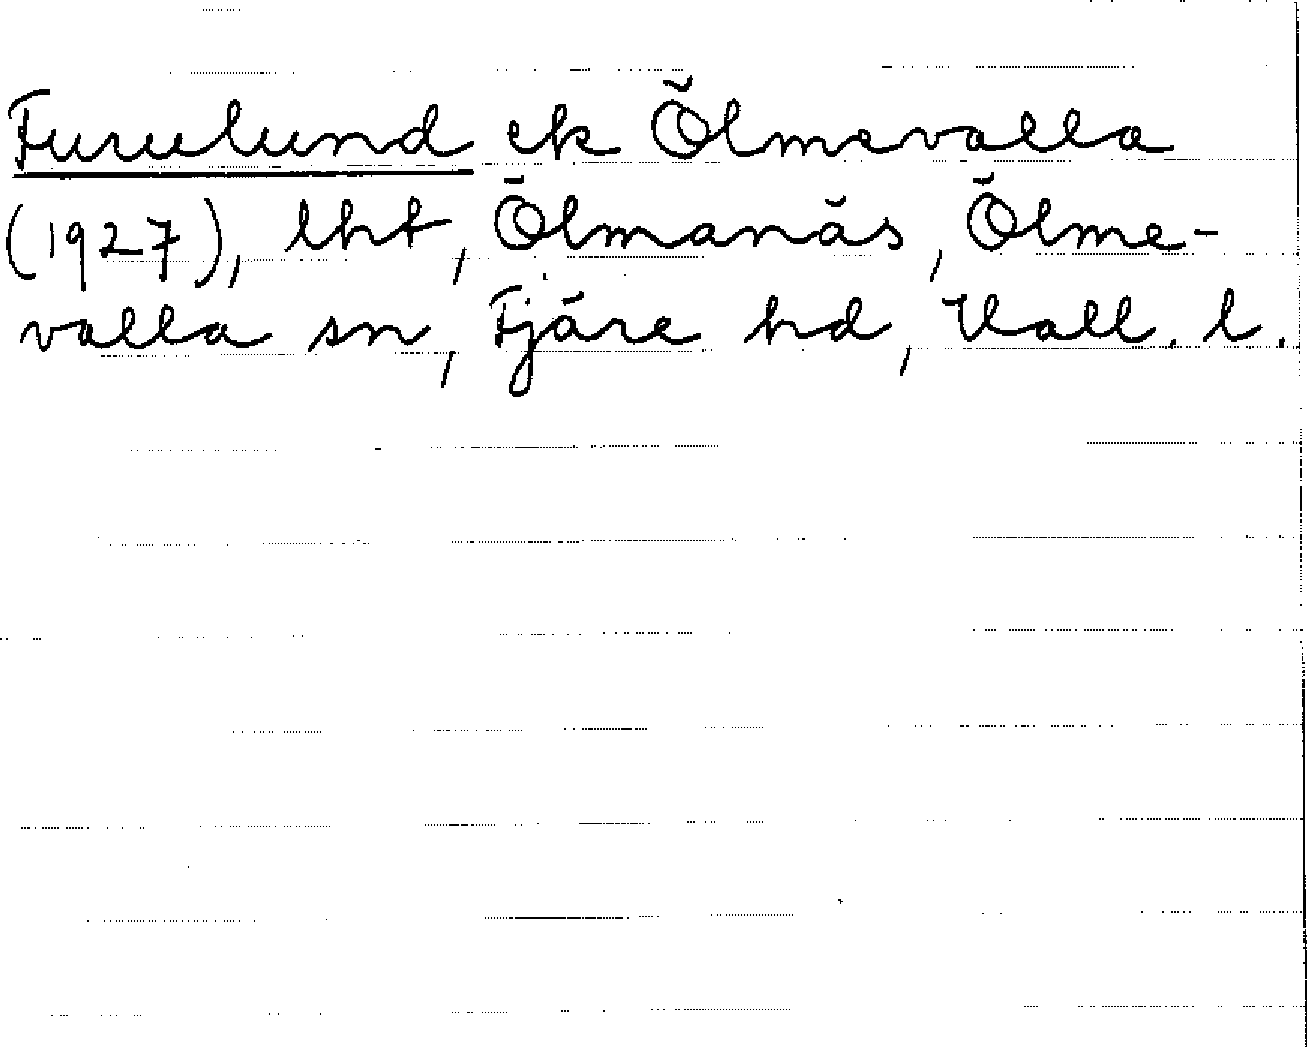 Furulund ek Ölmevalla
(1927), lht, Ölmanäs, Ölme-
valla sn, Fjäre hd, Hall. l.